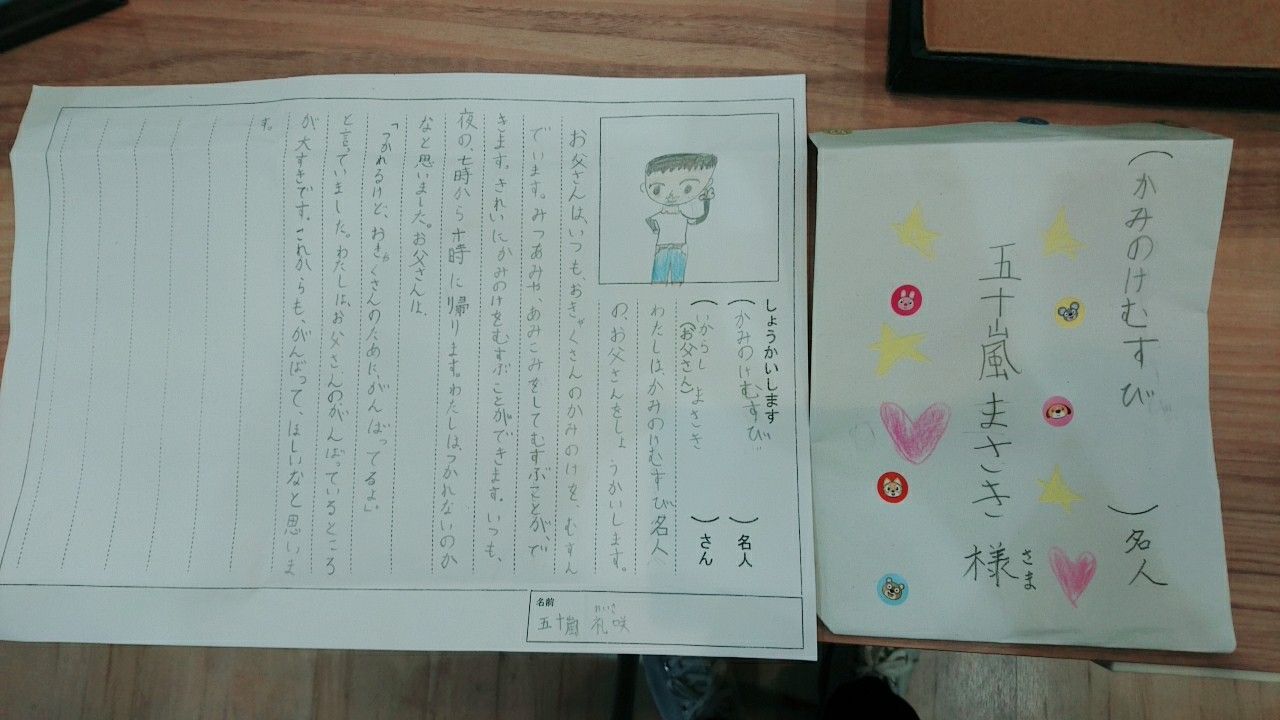 (かみのけむすび)名人
五十嵐まさき様
さま
しょうかいします
(かみのけむすび)名人
(いからし まさき)さん
(お父さん)
わたしはかみのけむすび名人
の、お父さんをしょうかいします。
お父さんは、いつも、おきゃくさんのかみのけを、むすん
でいます。みつあみや、あみこみをしてむすぶことが、で
きます。きれいにかみのけをむすぶことができます。いつも、
夜の、七時から十時に帰ります。わたしは、つかれないのか
なと思いました。お父さんは、
「つかれるけど、おきゃくさんのために、がんばってるよ」
と言っていました。わたしは、お父さんのがんばっているところ
が、大すきです。これからも、がんばって、ほしいなと思いま
す。
名前
五十嵐 礼咲